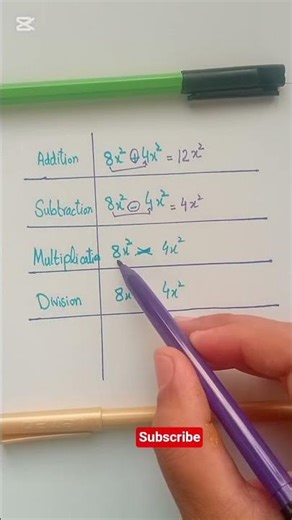 CapCut
Addition 8x² + 4x² = 12x²
Subtraction 8x² - 4x² = 4x²
Multiplication 8x² × 4x²
Division 8x 4x²
Subscribe